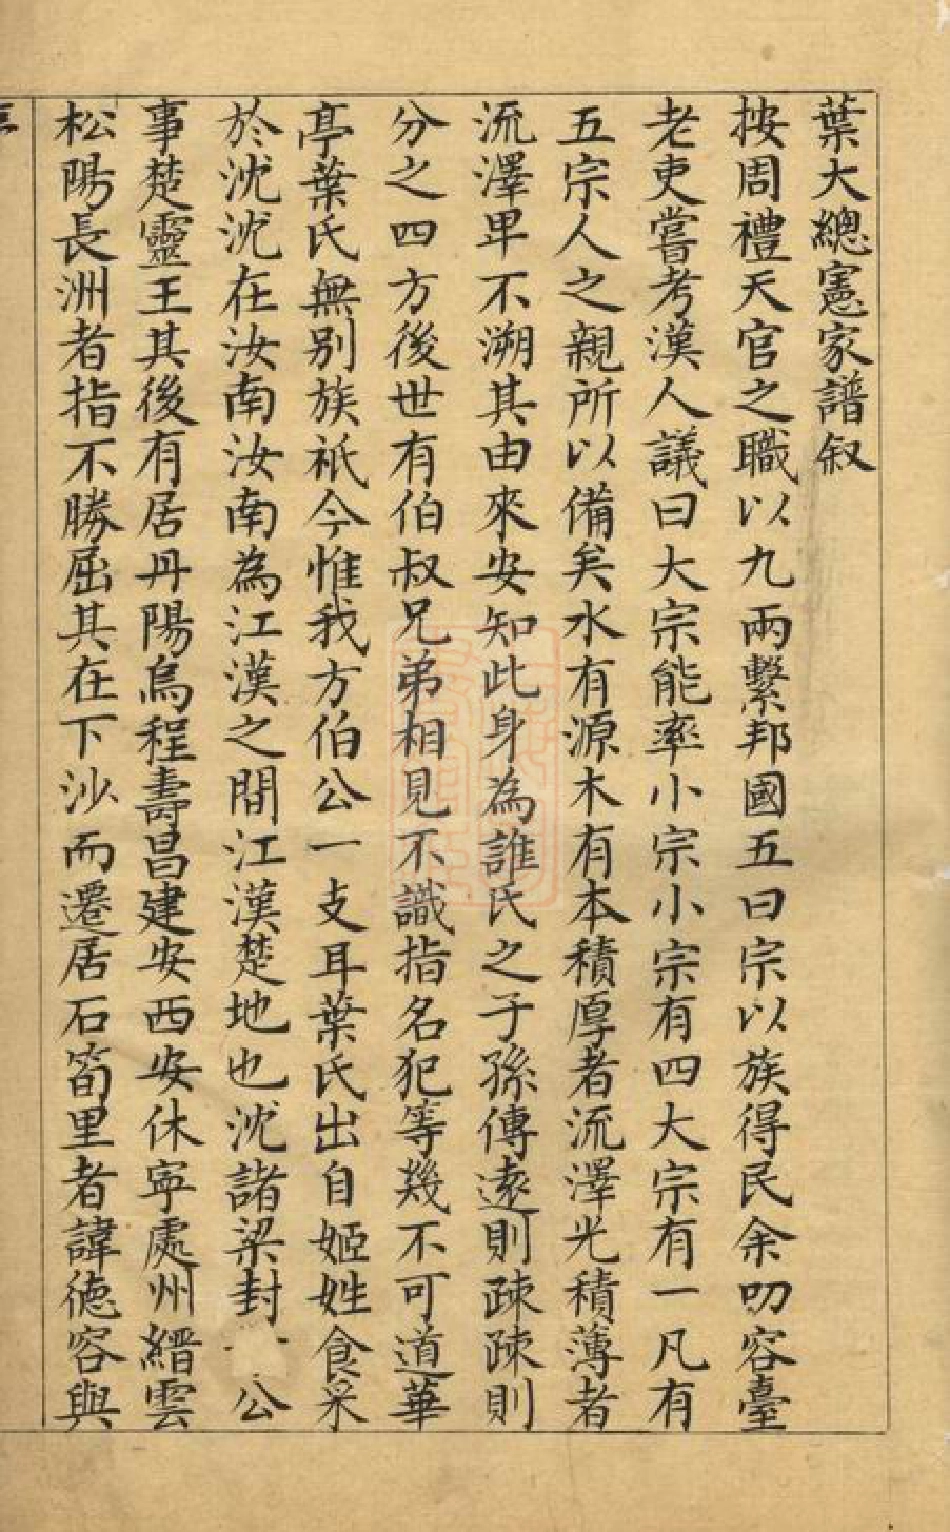 葉大總憲家譜叙
按周禮天官之職以九兩繫邦國五曰宗以族得民余叨容臺
老吏嘗考漢人議曰大宗能率小宗小宗有四大宗有一凡有
五宗人之親所以備矣水有源木有本積厚者流澤光積薄者
流澤卑不溯其由來安知此身為誰氏之子孫傳遠則疎疎則
分之四方後世有伯叔兄弟相見不識指名犯等幾不可道華
亭葉氏無別族祇今惟我方伯公一支耳葉氏出自姬姓食采
於沈沈在汝南汝南為江漢之間江漢楚地也沈諸梁封公
事楚靈王其後有居丹陽烏程壽昌建安西安休寧處州縉雲
松陽長洲者指不勝屈其在下沙而遷居石筍里者諱德容與